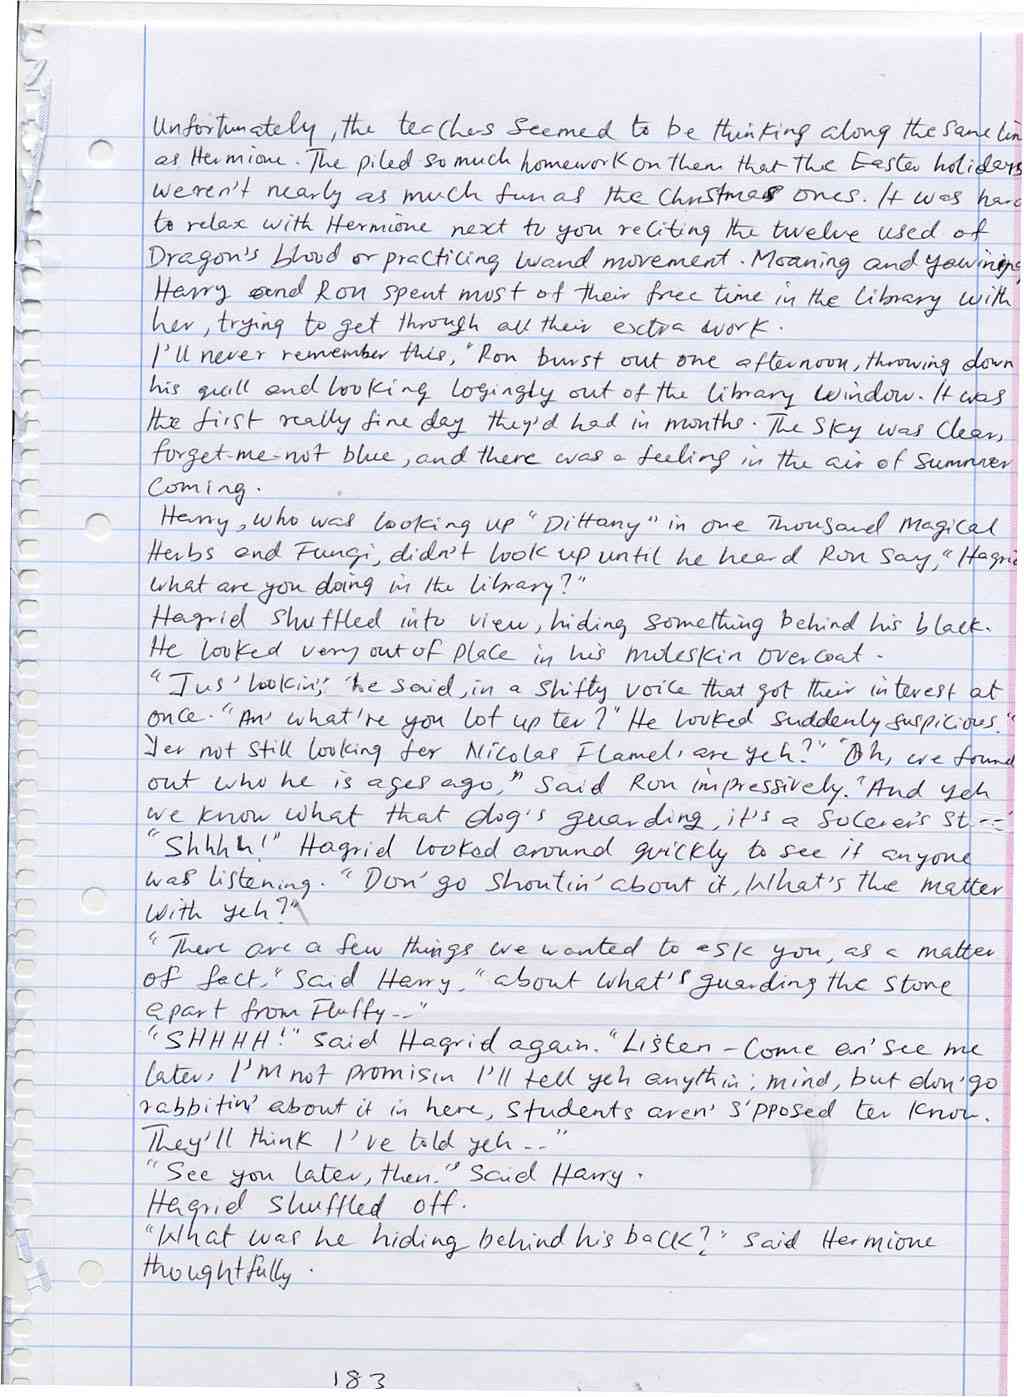 Unfortunately, the teachers seemed to be thinking along the same lin
as Hermione. The piled so much homework on them that the Easter holidays
weren't nearly as much fun as the Christmas ones. It was hard
to relax with Hermione next to you reciting the twelve used of
Dragon's blood or practicing wand movement. Moaning and yawining,
Harry and Ron spent most of their free time in the library with
her, trying to get through all their exctra work.
I'll never remember this," Ron burst out one afternoon, throwing down
his quill and looking logingly out of the library window. It was
the first really fine day they'd had in months. The sky was clear,
forget-me-not blue, and there was a feeling in the air of summer
coming.
Harry, who was looking up "Dittany" in one Thousand Magical
Herbs and Fungi, didn't look up until he heard Ron say, "Hagrid
what are you doing in the library?"
Hagrid shuffled into view, hiding something behind his black.
He looked very out of place in his moleskin overcoat.
"Jus' lookin'," he said, in a shifty voice that got their interest at
once. "An' what're you lot up ter?" He looked suddenly suspicious. "
Yer not still looking fer Nicolas Flamel, are yeh?" "Oh, we found
out who he is ages ago," said Ron impressively. "And yeh
we know what that dog's guarding, it's a Socerer's St---
"Shhhh!" Hagrid looked around quickly to see if anyone
was listening. "Don' go shoutin' about it, What's the matter
with yeh?"
"There are a few things we wanted to ask you, as a matter
of fact," said Harry, "about what's guarding the stone
apart from Fluffy--"
"SHHHH!" said Hagrid again. "Listen - Come an' see me
later, I'm not promisin I'll tell yeh anythin', mind, but don' go
rabbitin' about it in here, students aren' s'pposed ter know.
They'll think I've told yeh --"
"See you later, then." said Harry.
Hagrid shuffled off.
"What was he hiding behind his back?" said Hermione
thoughtfully.
183